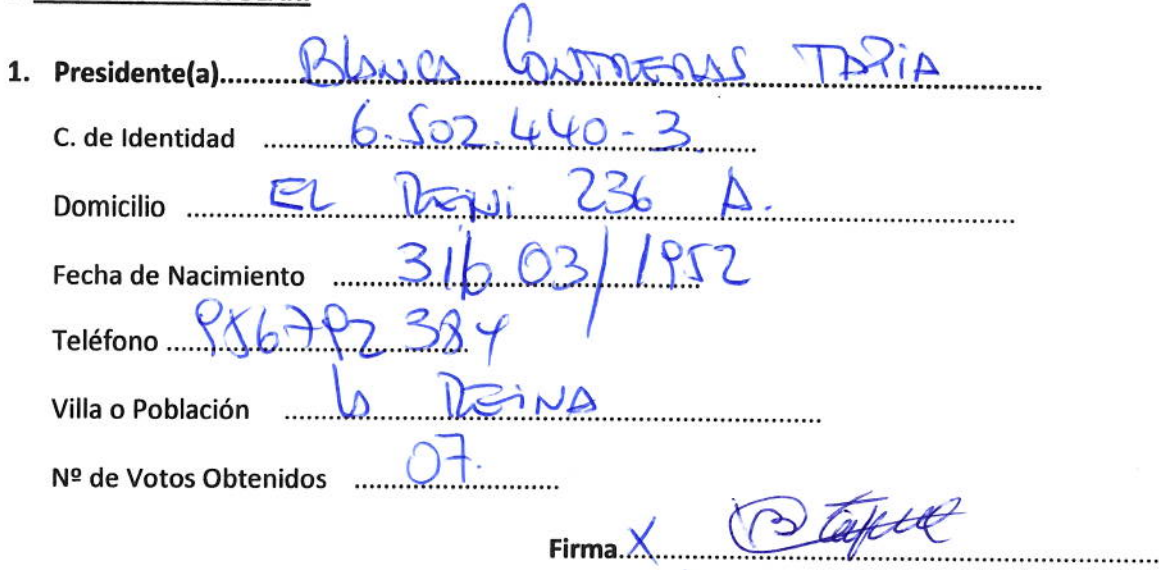 1. Presidente(a) Blanca Contreras Tapia
C. de Identidad 6.502.440-3
Domicilio El 236 A.
Fecha de Nacimiento 31 03/1952
Teléfono 986792384
Villa o Población La Reina
Nº de Votos Obtenidos 07.
Firma X